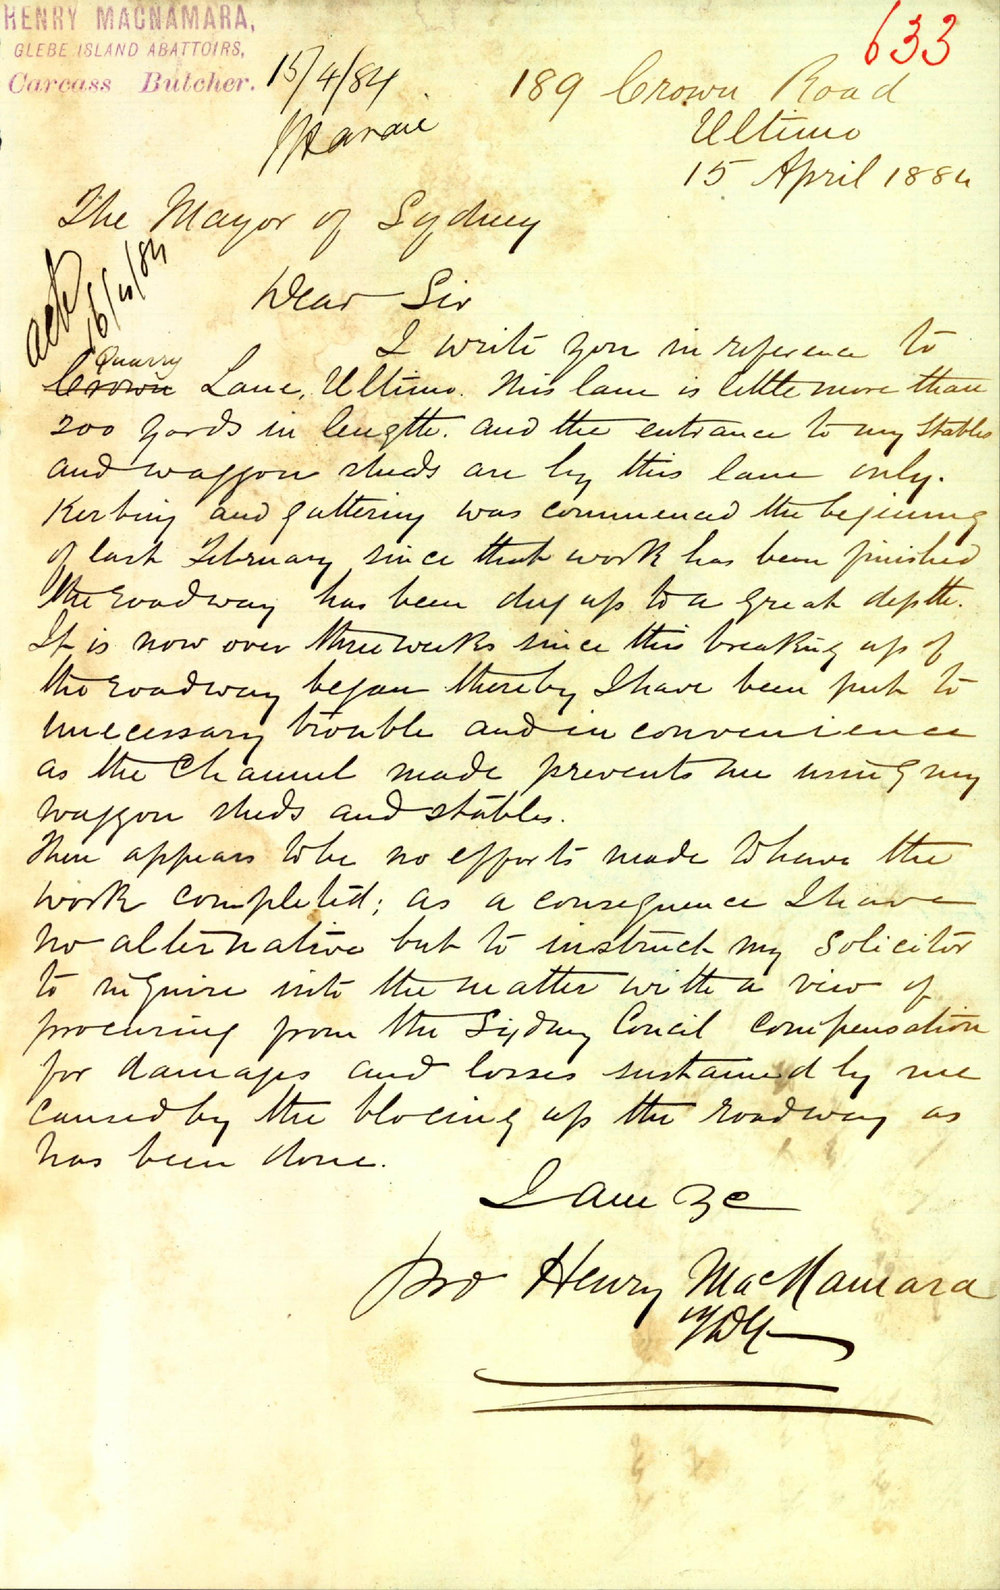 HENRY MACNAMARA,
GLEBE ISLAND ABATTOIRS,
Carcass Butcher.
633
15/4/84
189 Crown Road
Ultimo
15 April 1884
The Mayor of Sydney
ack
16/4/84
Dear Sir
I write you in reference to
Quarry
Crown Lane, Ultimo. This lane is little more than
200 yards in length. and the entrance to my stables
and waggon sheds are by this lane only.
Kerbing and guttering was commenced the begining
of last February since that work has been finished
the roadway has been dug up to a great depth.
It is now over three weeks since this breaking up of
the roadway began thereby I have been put to
unnecessary trouble and inconvenience
as the channel made prevents me using my
waggon sheds and stables.
There appears to be no efforts made to have the
work completed; as a consequence I have
no alternative but to instruck my solicitor
to inquire into the matter with a view of
procuring from the Sydney Concil compensation
for damages and losses sustained by me
caused by the blocing up the roadway as
has been done.
I am &c
pro Henry MacNamara